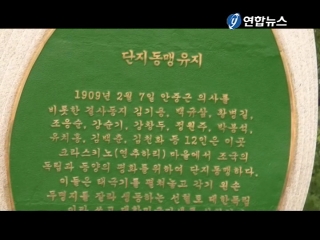 연합뉴스
단지동맹유지
1909년 2월 7일 안중근 의사를
비롯한 결사동지 김기용, 백규삼, 황병길,
조응순, 강순기, 강창두, 정원주, 박봉석,
유치홍, 김백춘, 김천화 등 12인은 이곳
크라스키노(연추하리) 마을에서 조국의
독립과 동양의 평화를 위하여 단지동맹하다.
이들은 태극기를 펼쳐놓고 각기 왼손
무명지를 잘라 생동하는 선혈로 대한독립